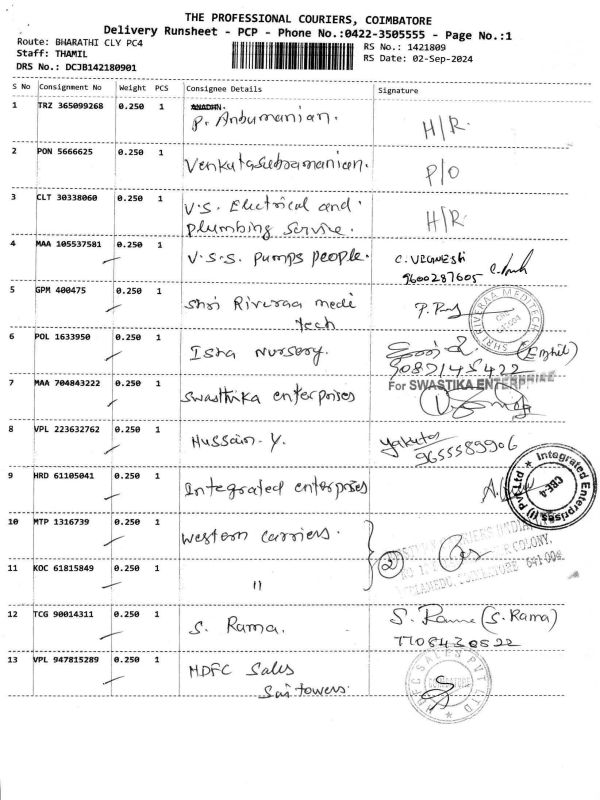 THE PROFESSIONAL COURIERS, COIMBATORE
Delivery Runsheet - PCP - Phone No.:0422-3505555 - Page No.:1
Route: BHARATHI CLY PC4
Staff: THAMIL
DRS No.: DCJB142180901
RS No.: 1421809
RS Date: 02-Sep-2024
S No Consignment No Weight PCS Consignee Details Signature
1 TRZ 365099268 0.250 1 P. Anbumanian. H/R.
2 PON 5666625 0.250 1 Venkutasubramanian. P/O
3 CLT 30338060 0.250 1 V.S. Electrical and H/R.
plumbing service.
4 MAA 105537581 0.250 1 V.S.S. pumps people. C. VIGNESH
9600287605
5 GPM 400475 0.250 1 Shri Riveraa medi
tech
SHRI RIVERAA MEDITECH
6 POL 1633950 0.250 1 Isha Nursery. (Ezhil)
9087145422
7 MAA 704843222 0.250 1 Swasthika enterprises For SWASTIKA ENTERPRISE
8 VPL 223632762 0.250 1 Hussain. Y. Yakutos
9655589906
9 HRD 61105041 0.250 1 Integrated enterprises
Integrated Enterprises (I) Pvt Ltd
CBE-4
10 MTP 1316739 0.250 1 Western carriers.
11 KOC 61815849 0.250 1 11 2
COLONY,
COIMBATORE 641 004
12 TCG 90014311 0.250 1 S. Rama. S. Rama (S. Rama)
7708430522
13 VPL 947815289 0.250 1 HDFC Sales
Sai towers.
HDFC SALES PVT LTD
COIMBATORE